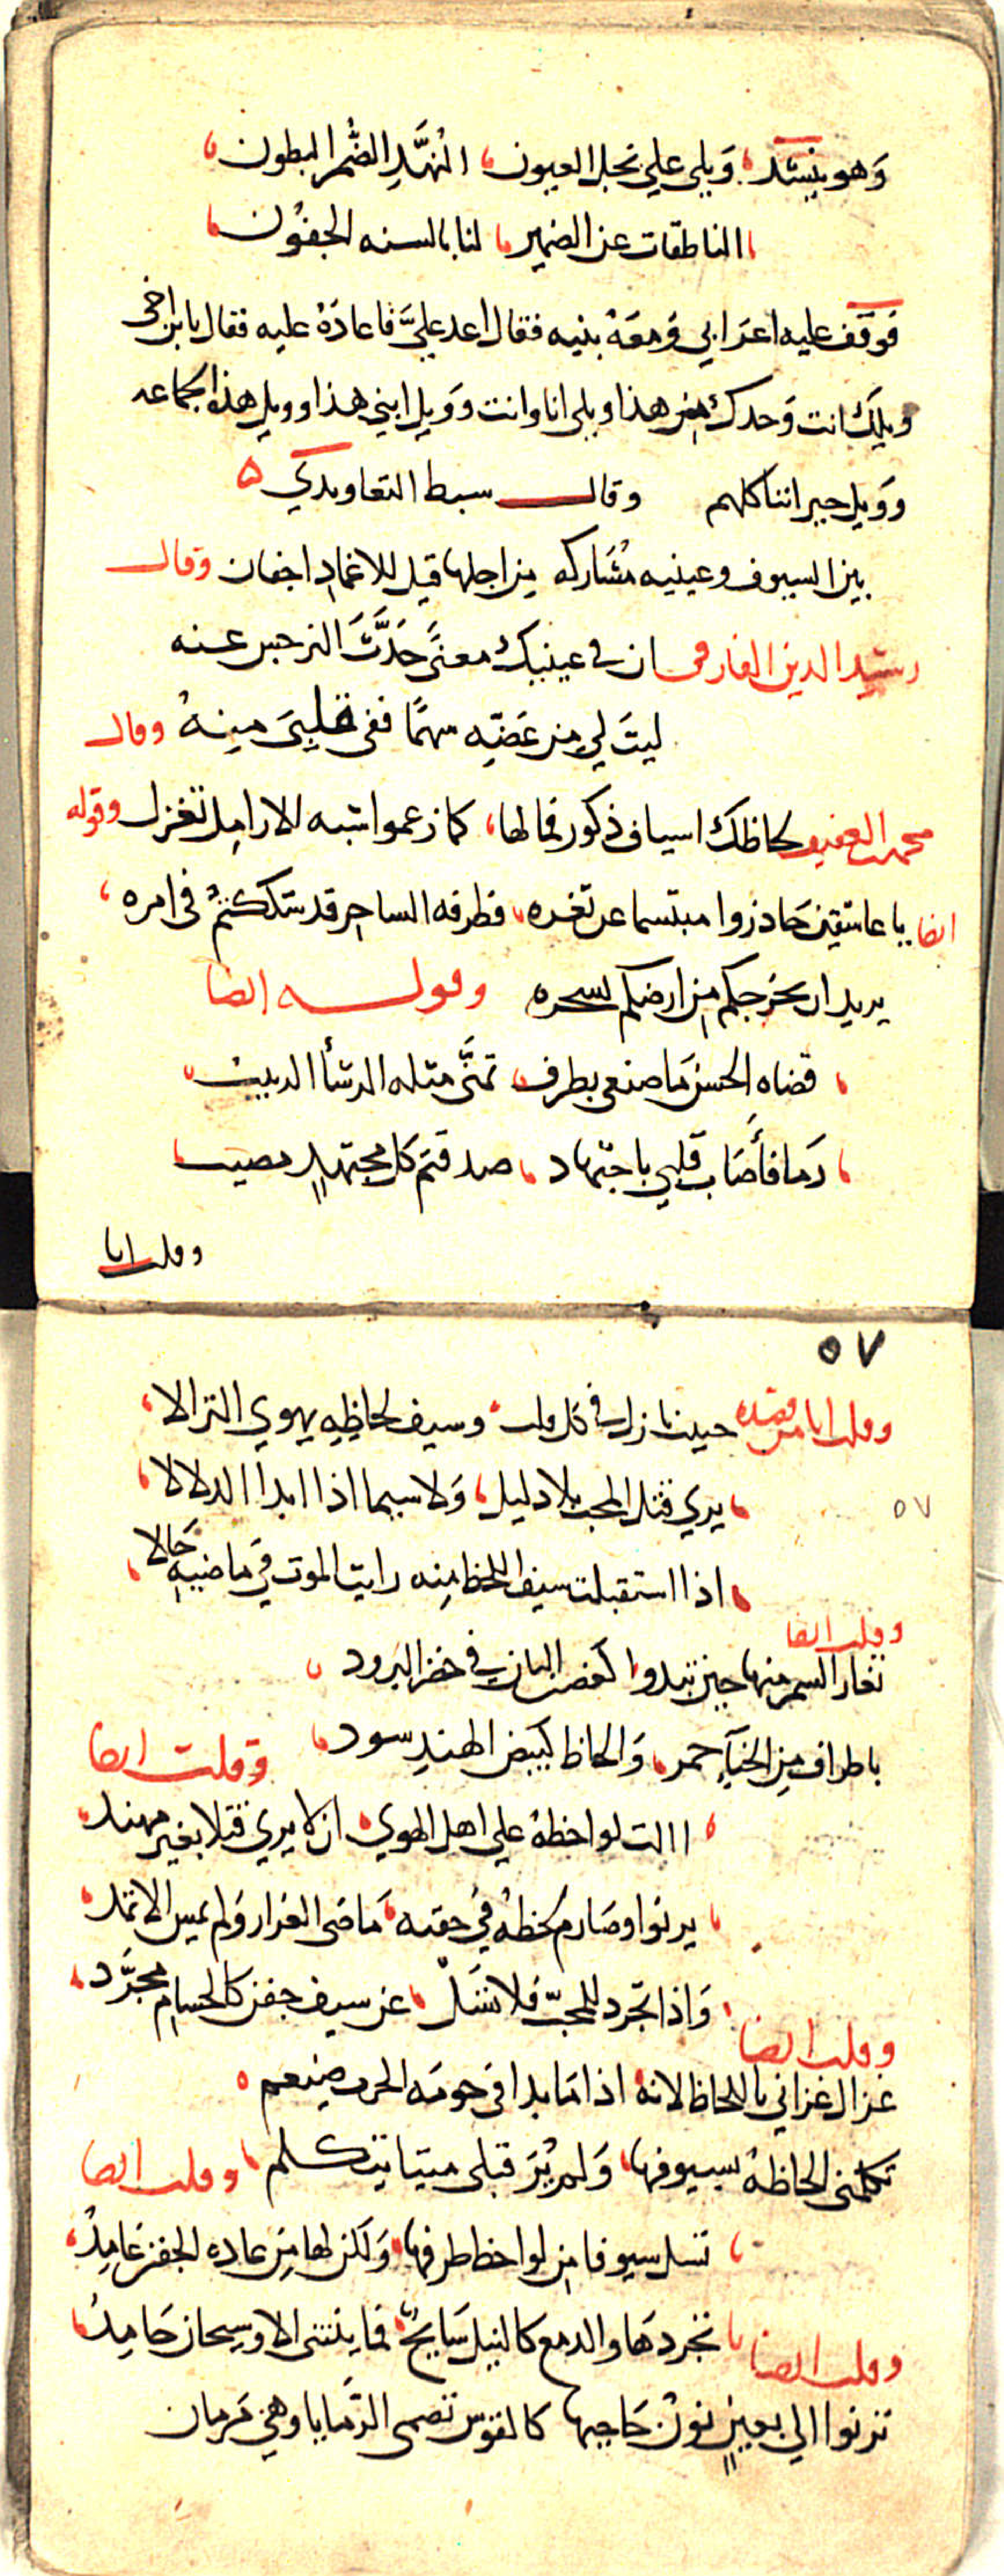 وهو ينشد ويلي علي نجل العيون النهد الضمر البطون
الناطقات عن الضمير لنا بالسنه الجفون
فوقف عليه اعرابي ومعه بنيه فقال اعد علي فاعاده عليه فقال يا بن اخي
ويلك انت وحدك من هذا ويلي انا وانت وويل ابني هذا وويل هذا الجماعه
وويل جيراننا كلهم وقال سبط التعاويدي
بين السيوف وعينيه مشاركه من اجلها قيل للاغماد اجفان وقال
رشيد الدين الفارقي ان في عينيك معنى حدث النرجس عنه
ليت لي من غضه سهما ففي قلبي منه وقال
محمد بن العفيف لحاظك اسياف ذكور فما لها كما زعموا شبه الارامل تغزل وقوله
ايضا يا عاشقين حاذروا مبتسما عن ثغره فطرفه الساحر قد شككتم في امره
يريد ان يخرجكم من ارضكم بسحره وقوله ايضا
قضاه الحسن ما صنعي بطرف تمنى مثله الرشأ الربيب
رما فأصاب قلبي باجتهاد صدقتم كل مجتهد مصيب
وقلت انا
٥٧
وقلت انا من قصيده حبيب نازل في كل قلب وسيف لحاظه يهوي النزالا
٥٧
يري قتل المحب بلا دليل ولا سيما اذا ابدا الدلالا
اذا استقبلت سيف اللحظ منه رايت الموت في ماضيه حالا
وقلت ايضا
تغار السمر منها حين تبدوا كغصن البان في خضر البرود
باطراف من الحناء حمر والحاظ كبيض الهند سود وقلت ايضا
االت لواحظه علي اهل الهوي ان لا يري قتلا بغير مهند
يرنوا وصارم لحظه في حقبه ماضى الغرار ولم يمس الاثمد
واذا تجرد للمحب فلا تسل عن سيف جفن كالحسام مجرد
وقلت ايضا
غزال غزاني باللحاظ لانه اذا ما بدا في حومه الحرب ضيغم
تكلمني الحاظه بسيوفها ولم يُر قبلي ميتا يتكلم وقلت ايضا
تسل سيوفا من لواحظ طرفها ولكن لها من عاده الجفن غامد
تجردها والدمع كالنيل سايح فما ينثني الا وسيحان جامد
وقلت ايضا
ترنوا الي بعين نون حاجبها كالقوس تصمى الرمايا وهي مرنان